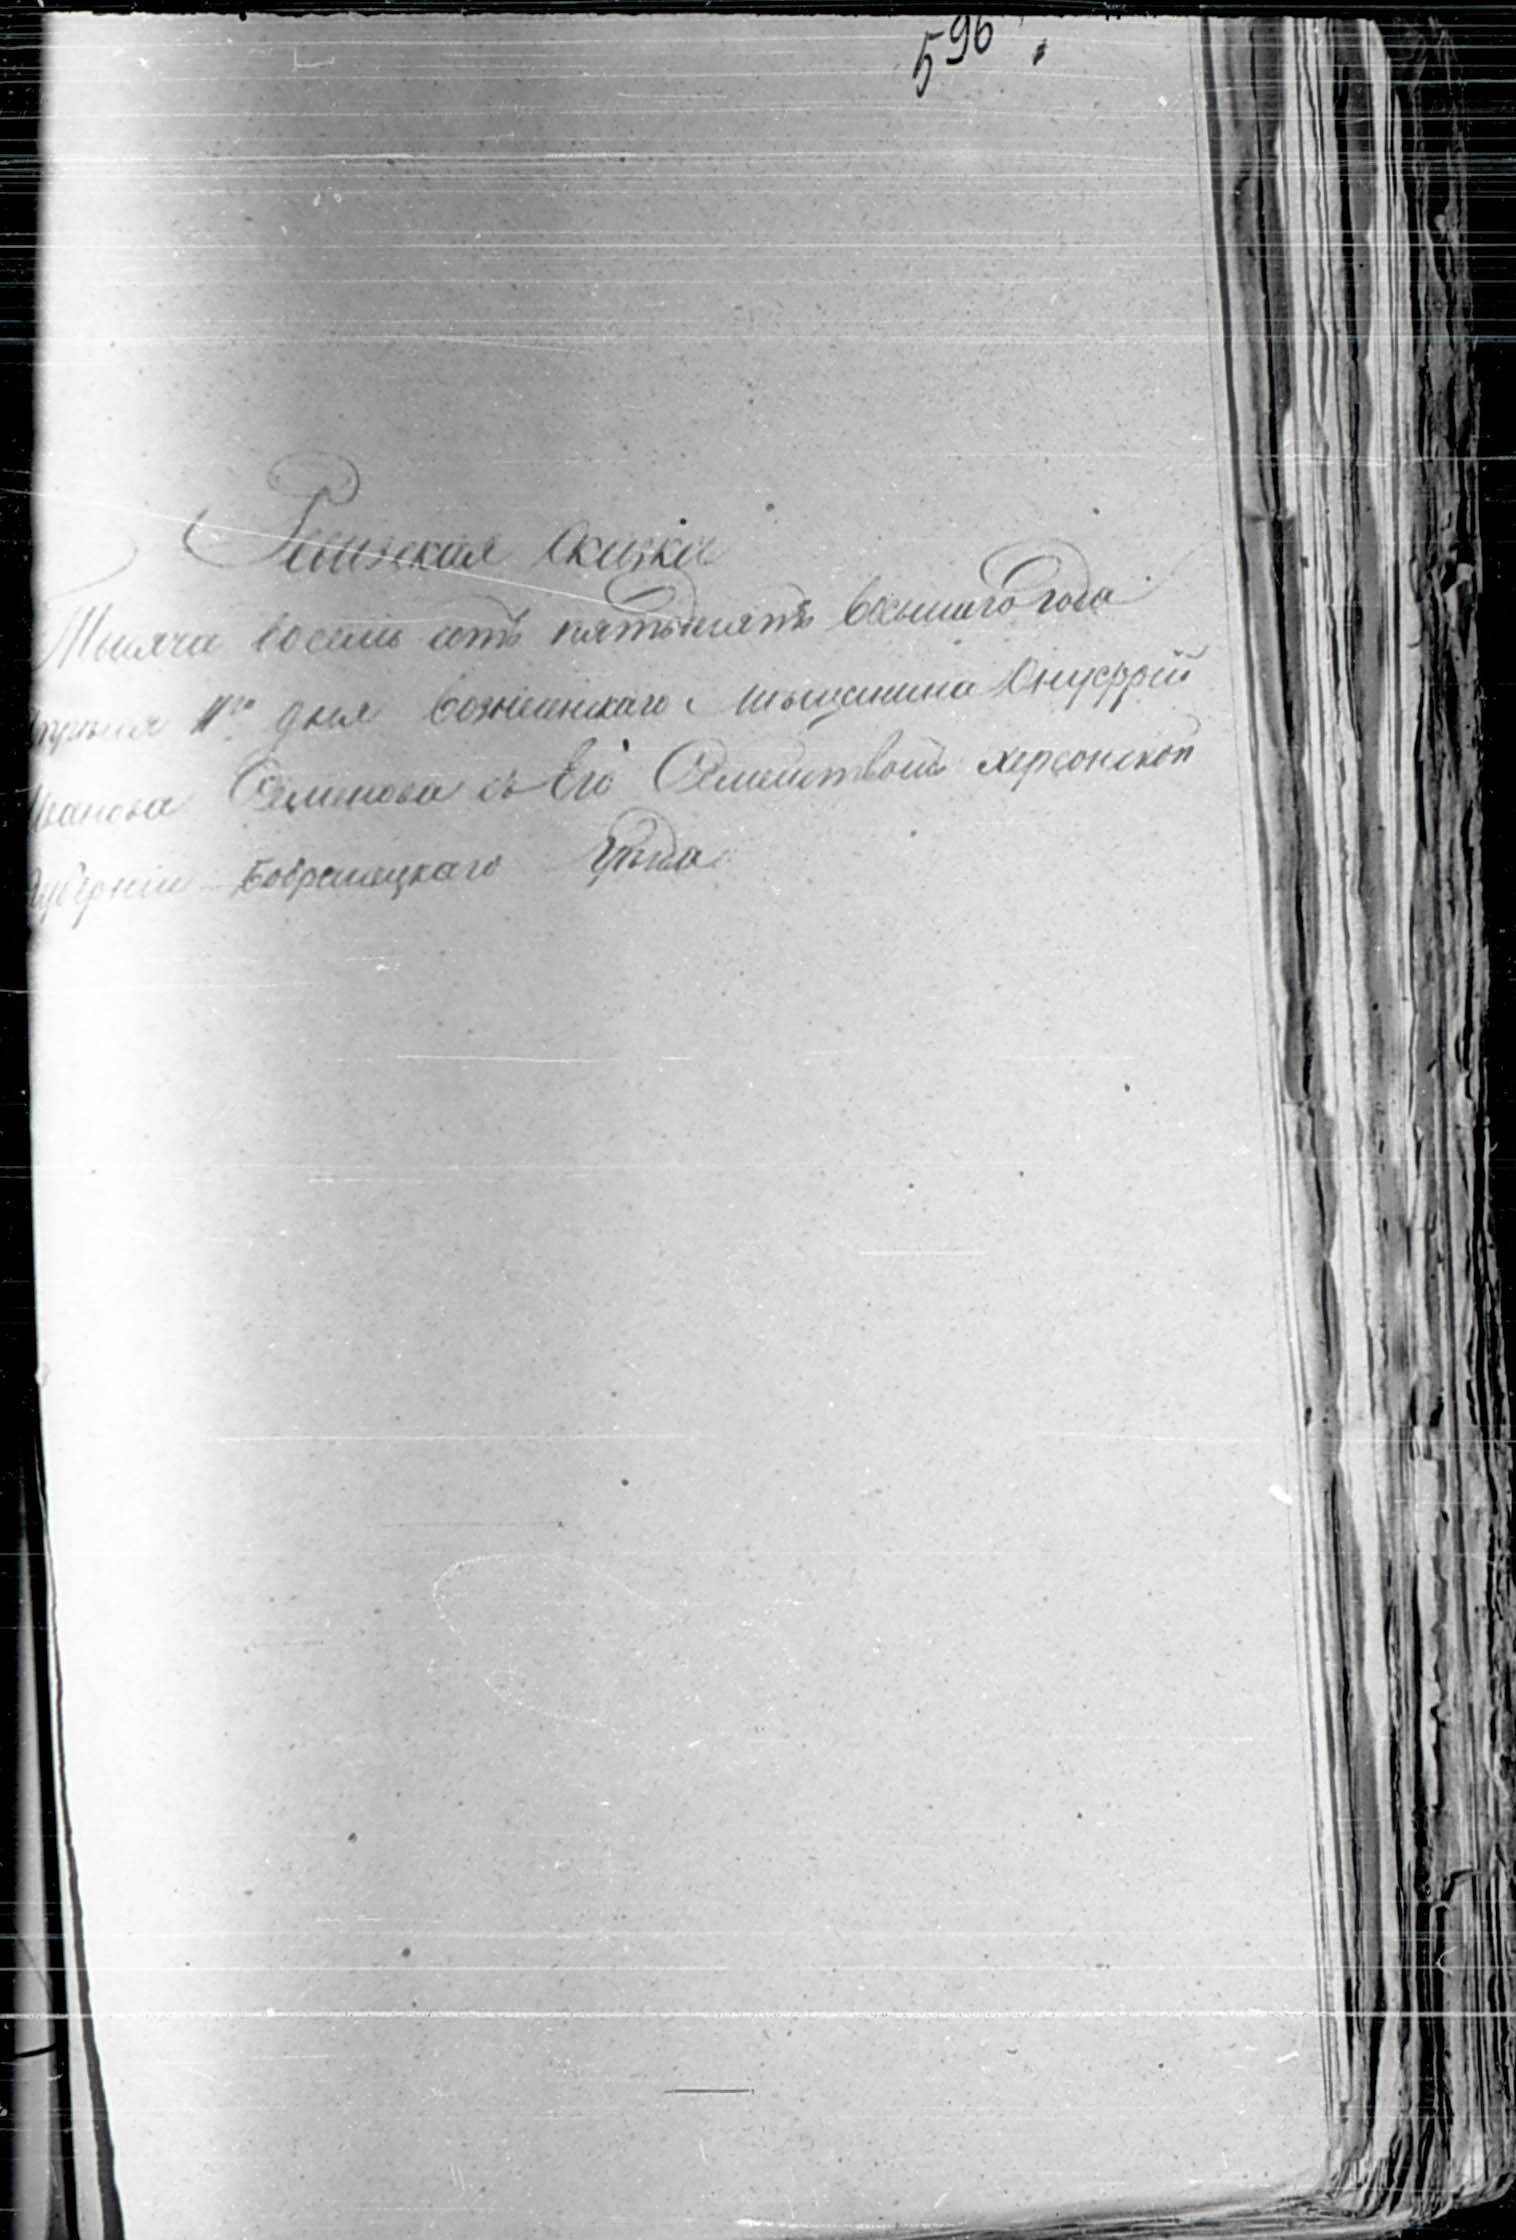 596.
Ревизская Скаска
Тысяча восемь сотъ пятьдесятъ восьмаго года
Апреля 11го дня Вознесенскаго мѣщанина Онуфрій
Иванова Семенова съ Его Семействомъ Херсонской
Губерніи Бобренецкаго Уѣзда